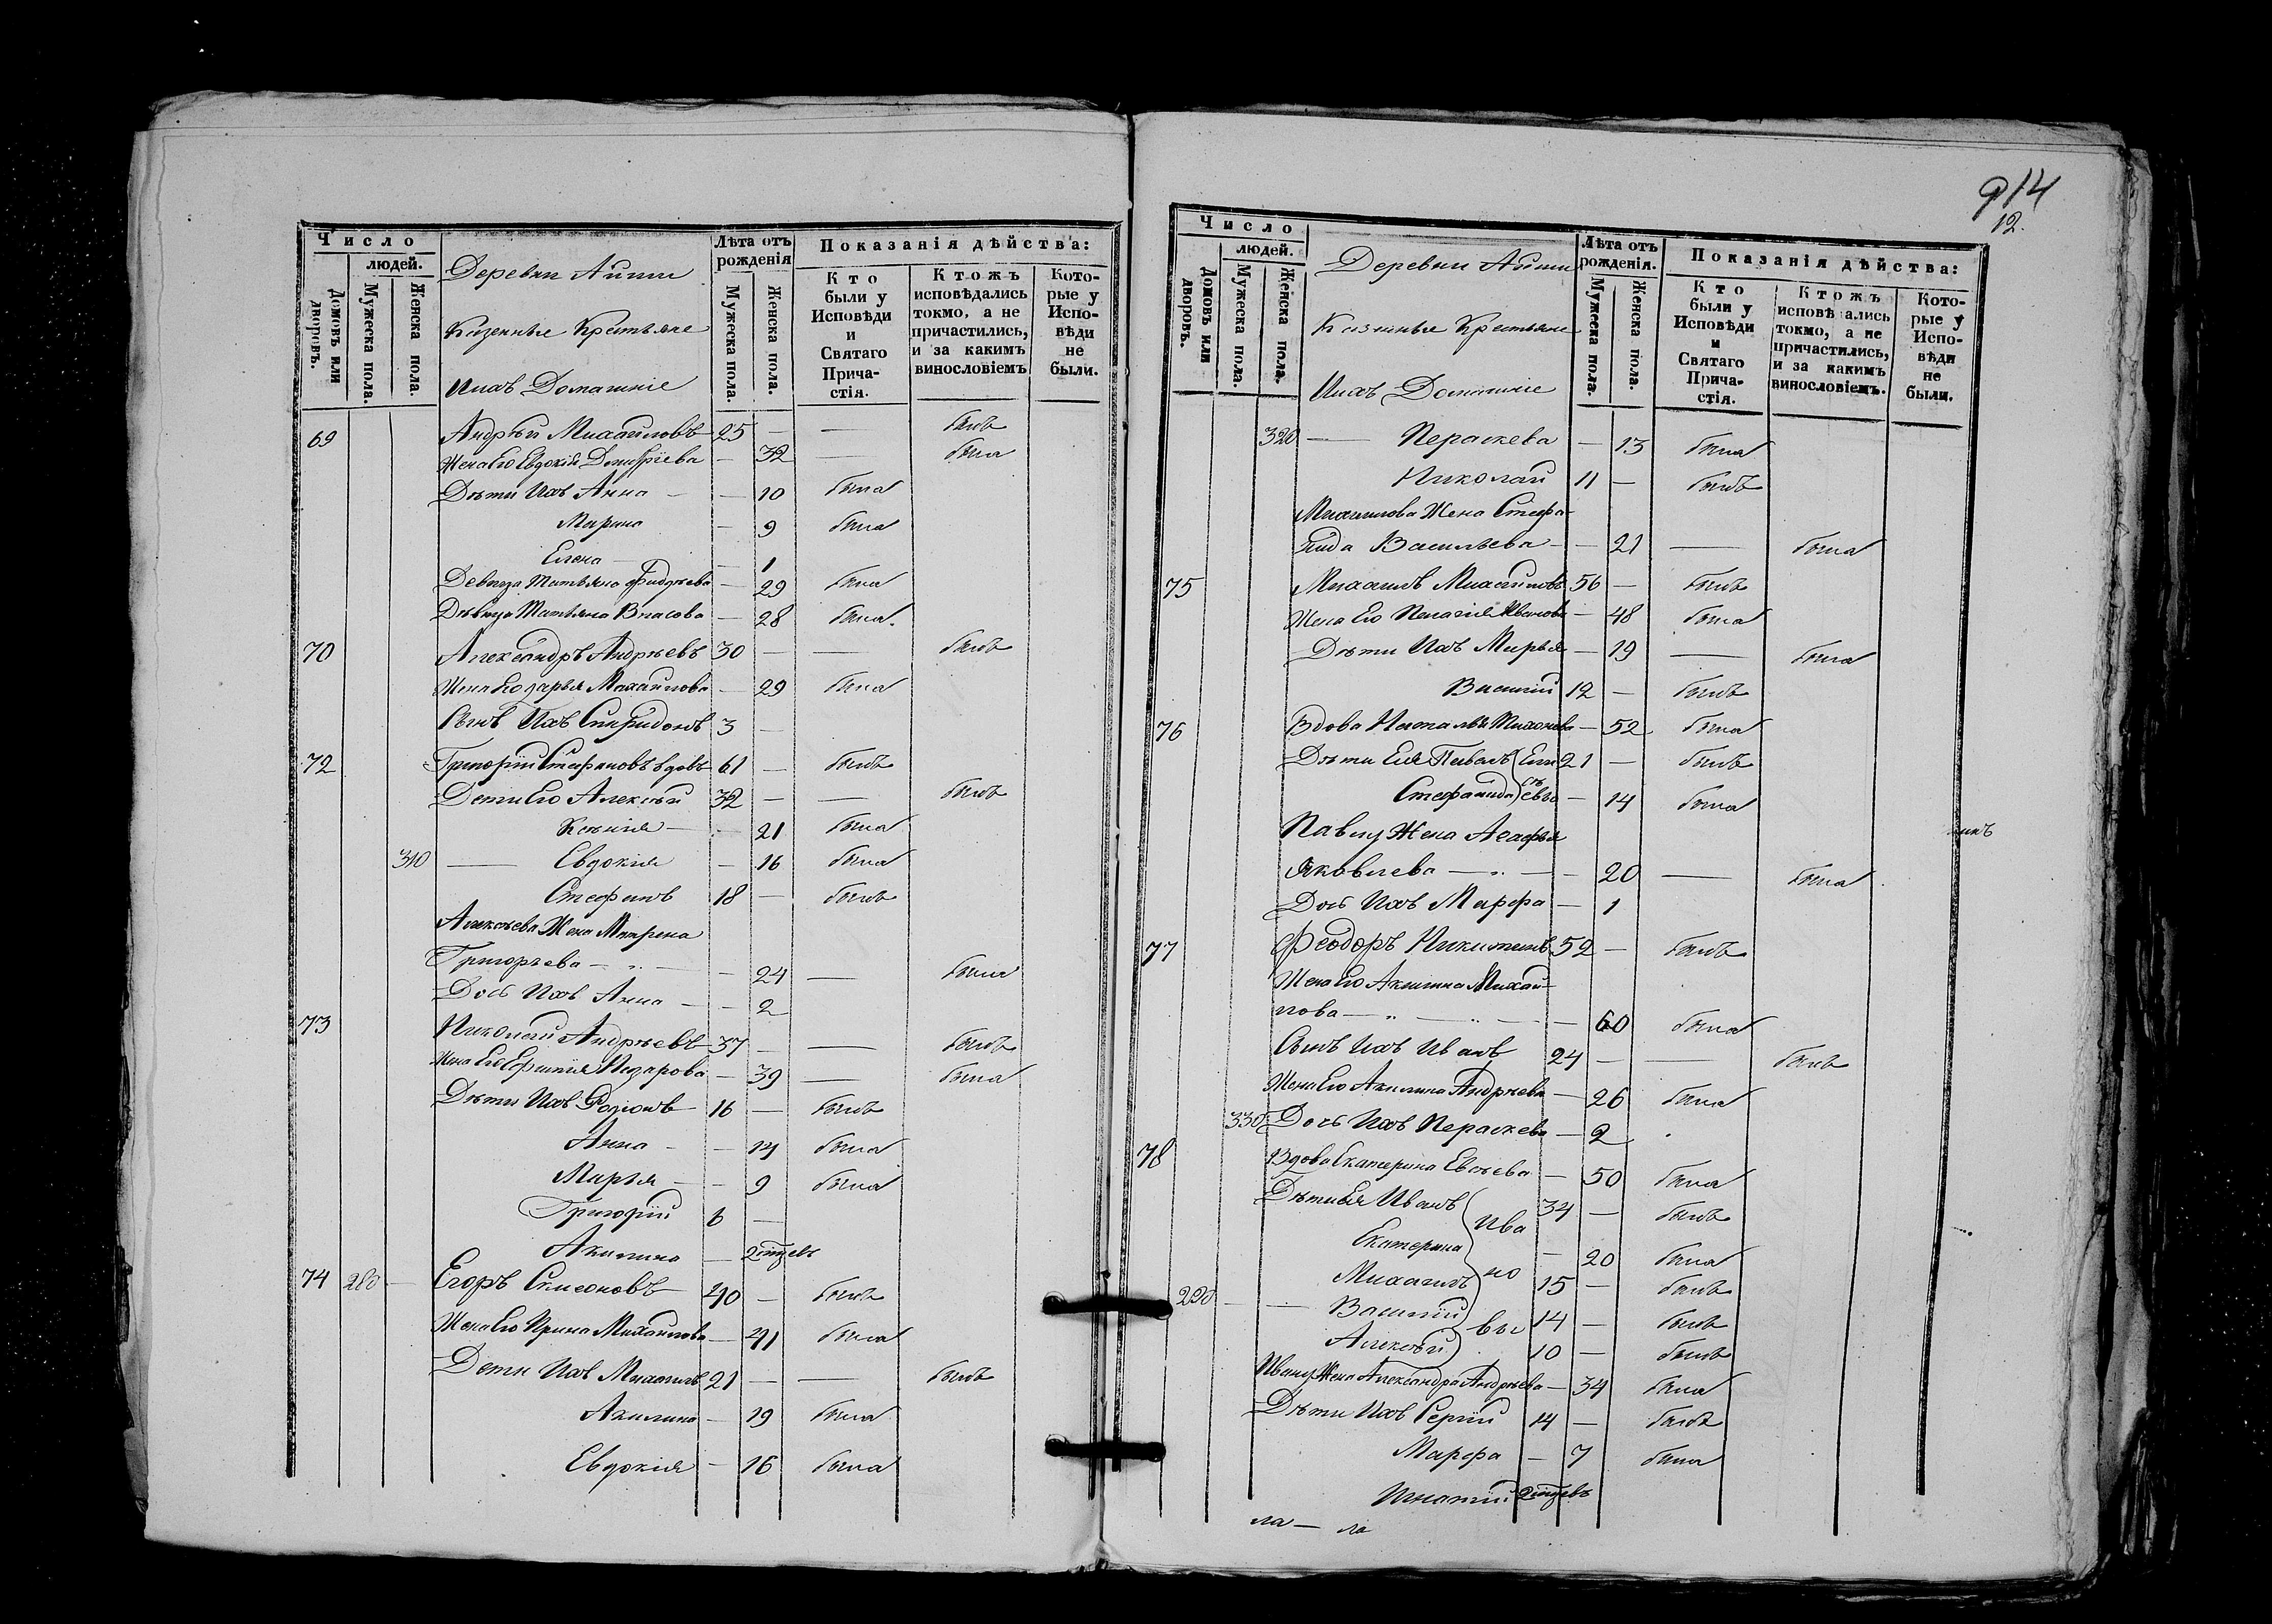 914
12.
Число
людей.
Домовъ или дворовъ.
Мужеска пола.
Женска пола.
Деревни
Казенныя Крестьяне
Ихъ Домашніе
Лѣта отъ рожденія
Мужеска пола.
Женска пола.
Показанія дѣйства:
Кто были у Исповѣди и Святаго Причастія.
Ктожъ исповѣдались токмо, а не причастились, и за какимъ винословіемъ
Которые у Исповѣди не были.
69 Андрѣй Михайловъ 25 — — былъ
Жена Его Евдокія Димитріева — 32 — была
Дѣти Ихъ Анна — — 10 была
Марина — 9 была
Елена — — 1
Девица Татьяна Фадѣева — 29 была
Дѣвица Татьяна Власова — 28 была.
70 Александръ Андрѣевъ 30 — — былъ
Жена Его Дарья Михайлова — 29 была
Сынъ Ихъ Спиридонъ 3 —
72 Григорій Стефановъ вдовъ 61 — былъ
Дети Его Алексѣй 32 — — былъ
Ксенія — — 21 была
310 — Евдокія — 16 была
Стефанъ 18 — былъ
Алексѣева Жена Матрена
Григорьева — „ — — 24 — была
Дочь Ихъ Анна — — 2
73 Николай Андрѣевъ 37 — — былъ
Жена Его Ефимія Назарова — 39 — была
Дѣти Ихъ Родіонъ 16 — былъ
Анна — — 14 была
Марья — — 9 была
Григорій 6 —
Акилина —
74 280 — Егоръ Симоновъ 40 — былъ
Жена Его Ирина Михайлова — 41 была
Дети Ихъ Михаилъ 21 — — былъ
Акилина — 19 была
Евдокія — 16 была
Число
людей.
Домовъ или дворовъ.
Мужеска пола.
Женска пола.
Деревни
Казенныя Крестьяне
Ихъ Домашніе
Лѣта отъ рожденія.
Мужеска пола.
Женска пола.
Показанія дѣйства:
Кто были у Исповѣди и Святаго Причастія.
Ктожъ исповѣ ались токмо, а не причастились, и за какимъ винословіемъ.
Которые у Исповѣди не были.
320 — Параскева — 13 была
Николай 11 — былъ
Михаилова Жена Стефа-
нида Васильева — — 21 — была
75 Михаилъ Михайловъ 56 — былъ
Жена Его Пелагія Иванова — 48 была
Дѣти Ихъ Марья — 19 — была
Василій 12 — былъ
76 Вдова Наталья Тихонова — 52 была
Дѣти Ея Павелъ 21 — былъ
Стефанида — 14 была
Павлу Жена Агафья
Яковлева — „ — — 20 — была
Дочь Ихъ Марфа — 1
77 Феодоръ Никитинъ 52 — былъ
Жена Его Акилина Михай-
лова — „ — „ — — 60 была
Сынъ Ихъ Иванъ 24 — — былъ
Жена Его Акилина Андрѣева — 26 была
330 Дочь Ихъ Параскева — 2
78 Вдова Екатерина Евсѣева — 50 была
Дѣти Ея Иванъ Ива 34 — былъ
Екатерина — 20 была
Михаилъ но 15 — былъ
290 — — Василій вы 14 — былъ
Алексѣй 10 — былъ
Ивану Жена Александра Андрѣева — 34 была
Дѣти Ихъ Сергій 14 — былъ
Марфа — 7 была
Игнатій
ла — ла